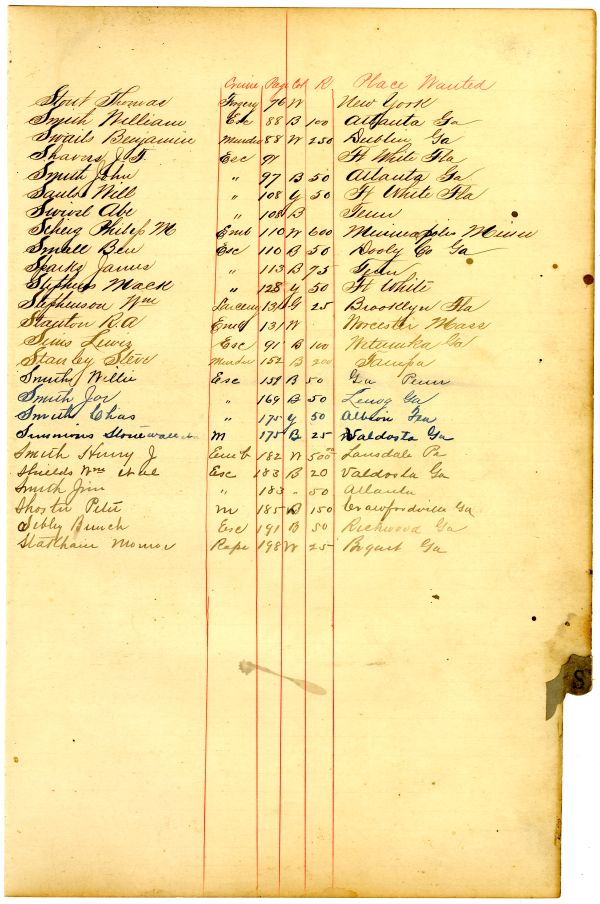 Crime Page Col R Place Wanted
Stout Thomas Forgery 96 W New York
Smith William Esc 88 B 100 Atlanta Ga
Swails Benjamin Murder 88 W 250 Dublin Ga
Shavers J. T. Esc 91 Ft White Fla
Smith John " 97 B 50 Atlanta Ga
Sauls Will " 108 y 50 Ft White Fla
Swirst Abe " 108 B Tenn
Scheig Philip M Emb 110 W 600 Minneapolis Minn
Small Ben Esc 110 B 50 Dooly Co Ga
Sparks James " 113 B 75 Tenn
Stephens Mack " 128 y 50 Ft White
Stephenson Wm Larceny 131 G 25 Brooklyn Fla
Stanton R.A Emb 131 W Worcester Mass
Sims Lewis Esc 91 B 100 Wetumka Ga
Stanley Steve Murder 152 B 200 Tampa
Smith Willie Esc 159 B 50 Ga Penn
Smith Joe " 169 B 50 Lenox Ga
Smith Chas " 175 y 50 Albion Fla
Simmons Stonewall M 175 B 25 Valdosta Ga
Smith Henry J Emb 182 W 500 Lansdale Pa
Shields Wm et al Esc 183 B 20 Valdosta Ga
Smith Jim " 183 " 50 Atlanta
Shorter Pete M 185 B 150 Crawfordville Ga
Sibley Bunch Esc 191 B 50 Richwood Ga
Statham Monroe Rape 198 W 25 Bogart Ga
S